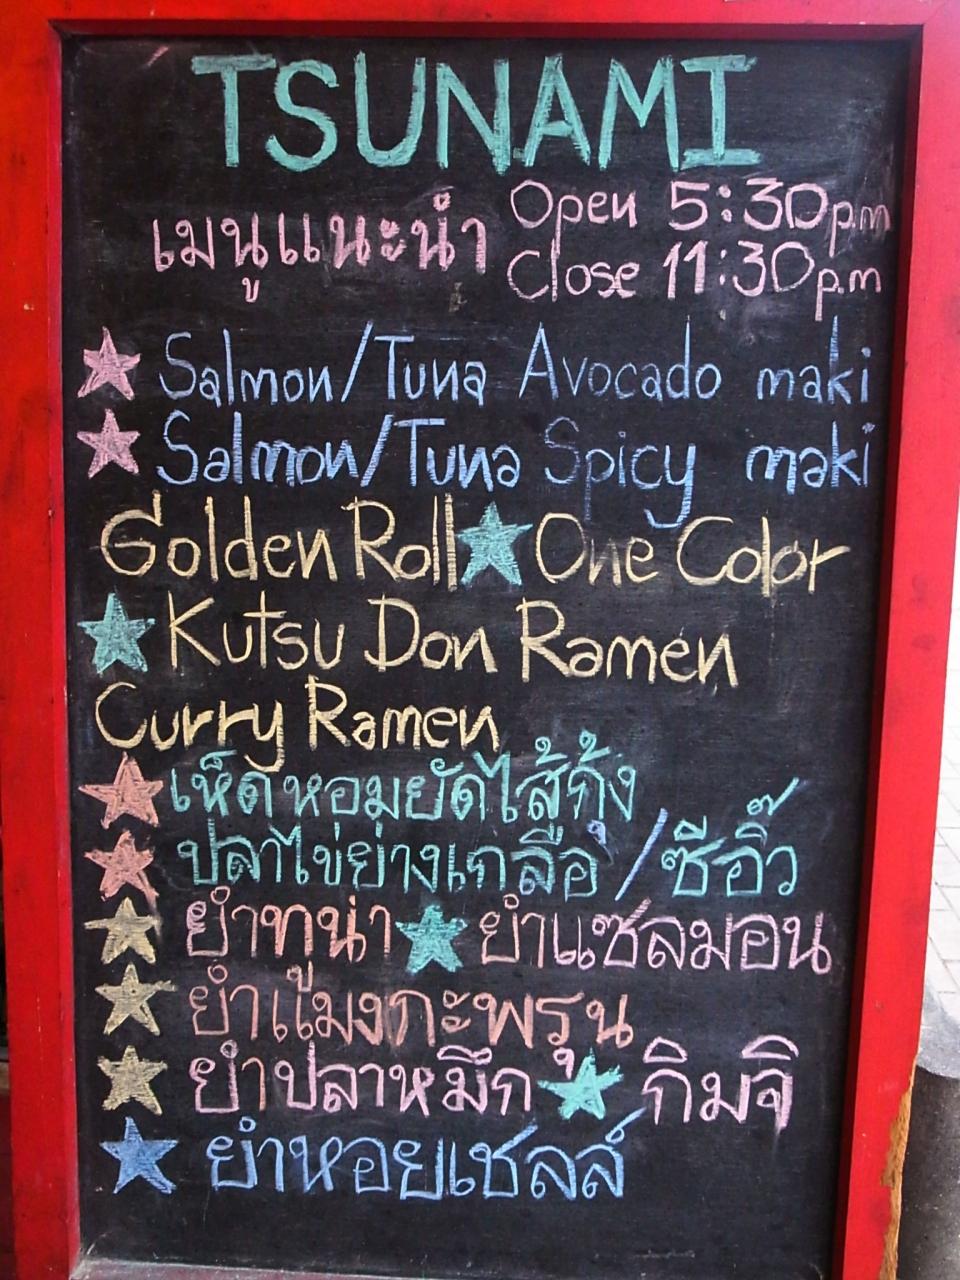 TSUNAMI
เมนูแนะนำ Open 5:30p.m
Close 11:30p.m
Salmon/Tuna Avocado maki
Salmon/Tuna Spicy maki
Golden Roll One Color
Kutsu Don Ramen
Curry Ramen
เห็ดหอมยัดไส้กุ้ง
ปลาไข่ย่างเกลือ/ซีอิ๊ว
ยำทูน่า ยำแซลมอน
ยำแมงกะพรุน
ยำปลาหมึก กิมจิ
ยำหอยเชลล์